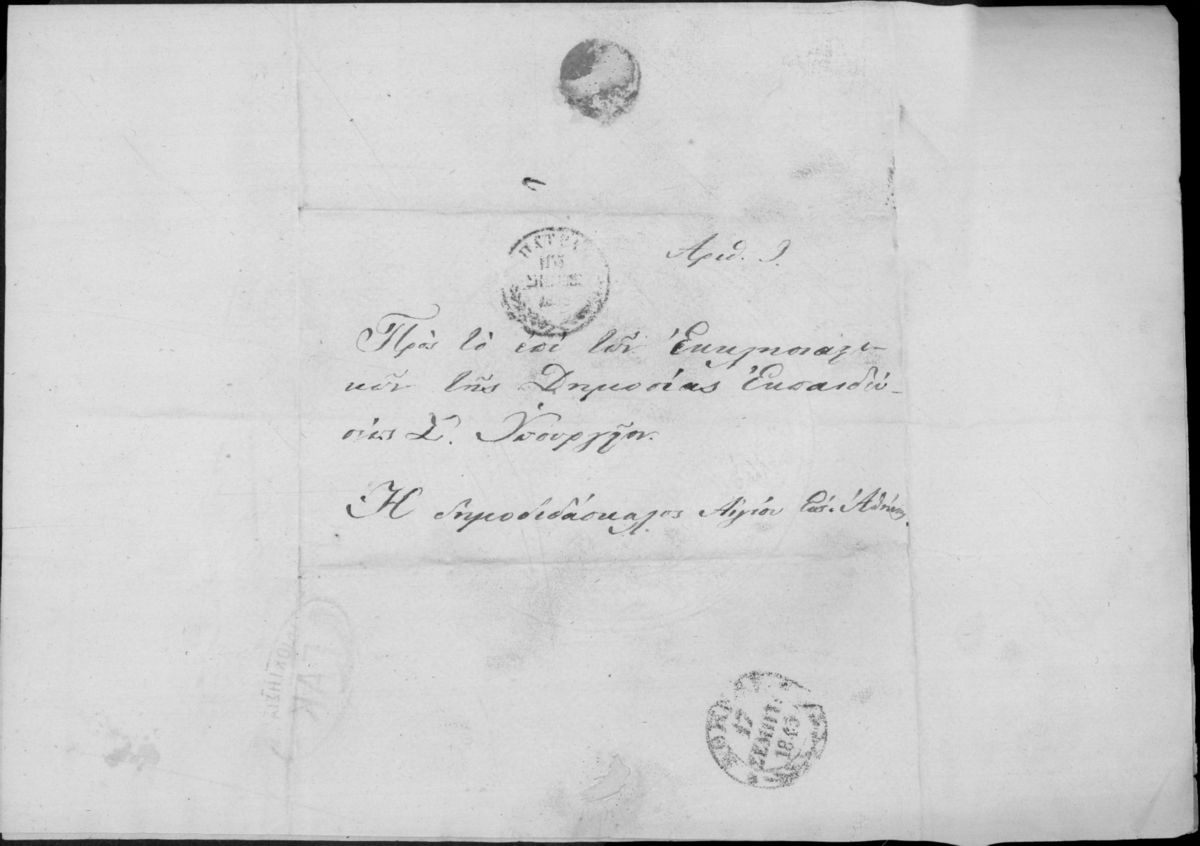 Αριθ. 9.
ΠΑΤΡΑΙ
Πρὸς τὸ ἐπὶ τῶν Ἐκκλησιαστι-
κῶν τῆς Δημοσίας Ἐκπαιδεύ-
σεως Σ. Ὑπουργεῖον.
Ἡ δημοδιδάσκαλος Αἰγίου Εἰς Ἀθήνας
17
ΣΕΠΤ.
1843